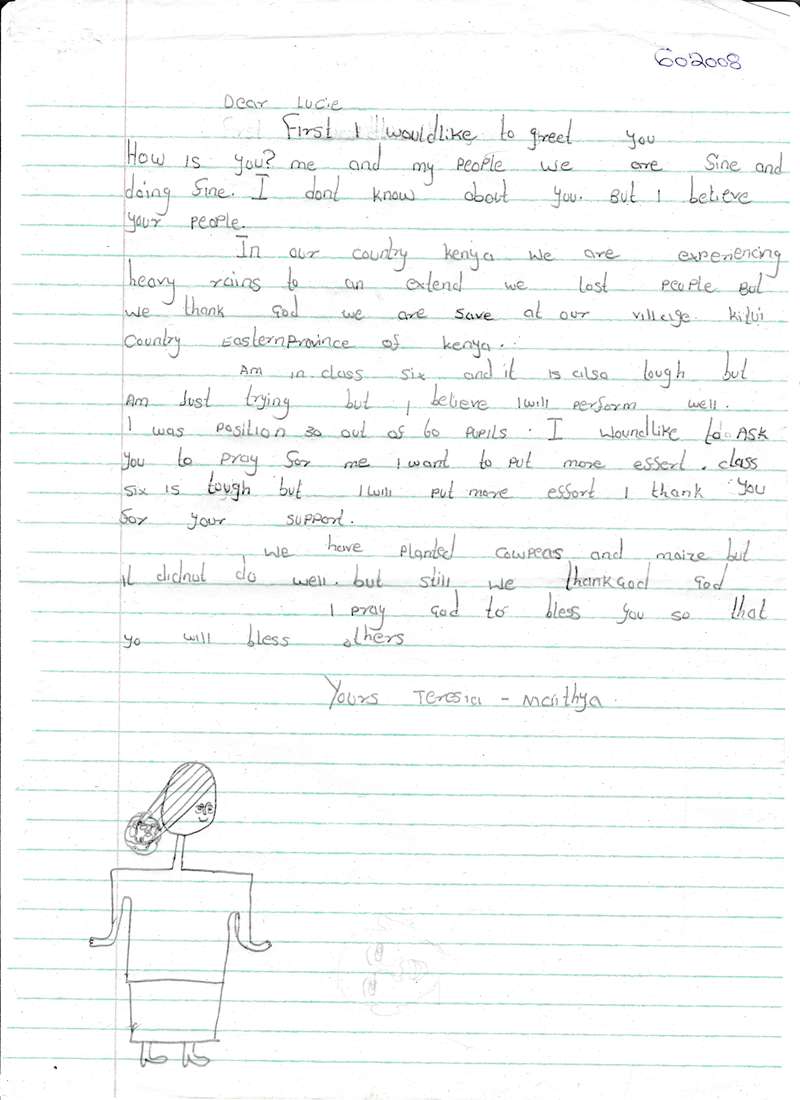 602008
Dear Lucie
First I wouldlike to greet you
How is you? me and my people we are Sine and
doing Sine. I dont know about you. But I believe
your people.
In our country kenya we are experiencing
heavy rains to an extend we lost people But
we thank God we are save at our village kitui
Country EasternProvince of kenya..
Am in class six and it is also tough but
Am Just trying but I believe Iwill perform well.
I was Position 30 out of 60 Pupils. I woundlike to Ask
you to pray Sor me I want to Put more essert. class
six is tough but Iwill put more essort I thank you
Sor your support.
, we have planted cowpeas and maize but
it didnut do well. but still we thankGod God
I pray God to bless you so that
yo will bless others
Yours Teresia - Maithya.